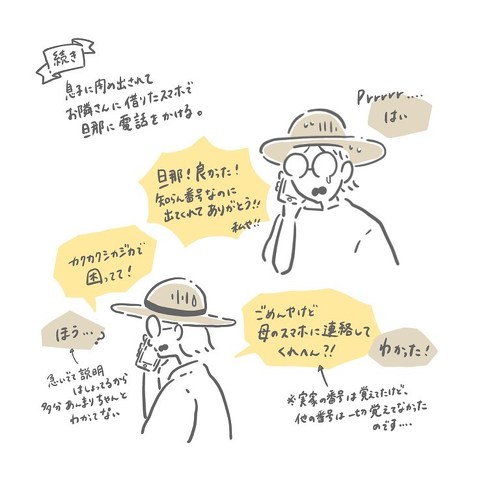 続き
息子に閉め出されて
お隣さんに借りたスマホで
旦那に電話をかける。
Prrrrr....
はい
旦那！良かった！
知らん番号なのに
出てくれてありがとう!!
私や!!
カクカクシカジカで
困ってて！
ほう...
急いでて説明
はしょってるから
多分あんまりちゃんと
わかってない
ごめんやけど
母のスマホに連絡して
くれへん?!
わかった！
※実家の番号は覚えてたけど、
他の番号は一切覚えてなかった
のです....